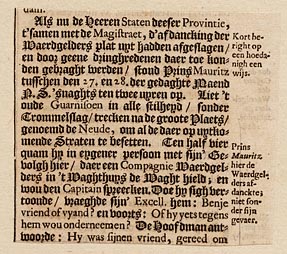 Als nu de Heeren Staten deeser Provintie,
t'samen met de Magistraet, d'afdancking der
Waerdgelders plat uyt hadden afgeslagen/
en door geene dinghredenen daer toe kon
den gebraght werden/ stond Prins Mauritz
tusschen den 27. en 28. der gedaght Maend
N. S. 'snaghts ten twee upren op. Liet 't
oude Guarnisoen in alle stilheyd/ sonder
Trommelslag/ trecken na de groote Plaets/
genoemd de Neude, om al de daer op uytko-
mende Straten te besetten. Een half vier
quam hy in eygener persoon met sijn Ge-
volgh hier/ daer een Compagnie Waerdgel-
ders in 't Waghthuys de Waght hield; en
wou den Capitain spreecken. Doe hy sigh ver-
toonde/ vraeghde sijn Excell. hem: Benje
vriend of vyand? en voorts: Of hy yets tegens
hem wou onderneemen? De Hoofdman ant-
woorde: Hy was sijnen vriend, gereed om
Kort be-
right op
een hoeda-
nigh een
wijs.
Prins
Mauritz
hier de
Waerdgel-
ders af-
danckte;
niet son-
der sijn
gevaer.